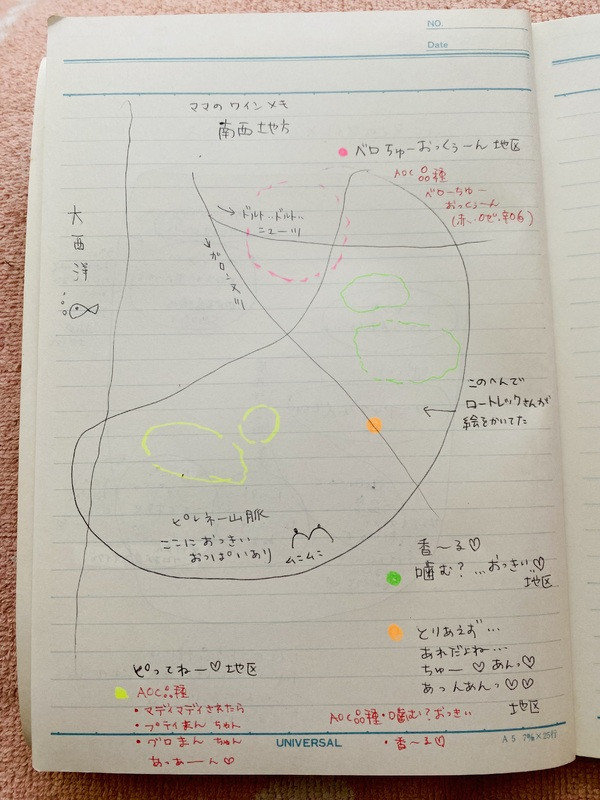 NO.
Date
ママのワインメモ
南西地方
ベロちゅーおっくぅーん 地区
AOC 品種
ベローちゅー
おっくぅーん
(赤、ロゼ、辛口6)
大西洋
ドルト‥ドルト‥
ニュー川
ガロンヌ川
このへんで
ロートレックさんが
絵をかいてた
ピレネー山脈
ここにおっきい
おっぱいあり
ムニムニ
香〜る♡
噛む?…おっきぃ♡
地区
とりあえず…
あれだよね…
ちゅー♡あんっ♡
あっんあんっ♡♡
地区
ピってねー♡地区
AOC品種
・マディマディされたら
・プティまん ちゃん
・グロまん ちゅん
あっぁーん♡
AOC品種・噛む?おっきぃ
・香〜る♡
UNIVERSAL
A.5 7㎜×25行